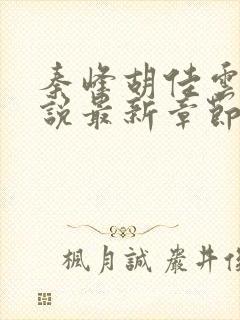 秦峰胡佳雲
說最新章節
楓月誠嚴井俊